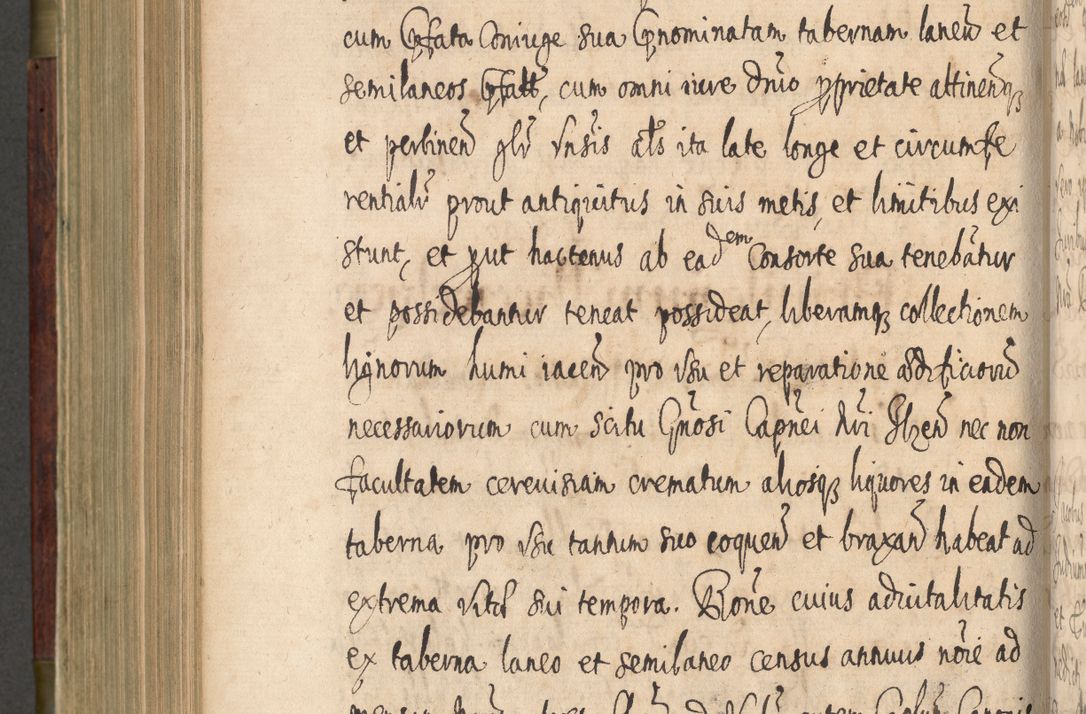 cum Pfata Coniuge sua Pnominatam tabernam laneũ et
semilaneos Pfatt, cum omni iure dnio pprietate attinenq
et pertinen glr Vnsis als ita late longe et circumfe
rentialr prout antiquitus in suis metis, et limitibus exi
stunt, et put hactenus ab eadem Consorte sua tenebatur
et possidebantur teneat possideat, liberamq collectionem
lignorum humi iacen pro vsu et reparatione ædificiorũ
necessariorum cum scitu Gnosi Capnei Nri Ilzen nec non
facultatem cereuisiam crematum aliosq liquores in eadem
taberna pro vsu tantum suo coquen et braxan habeat ad
extrema vitæ sui tempora. Rõne cuius aduitalitatis
ex taberna laneo et semilaneo census annuus nõie ad